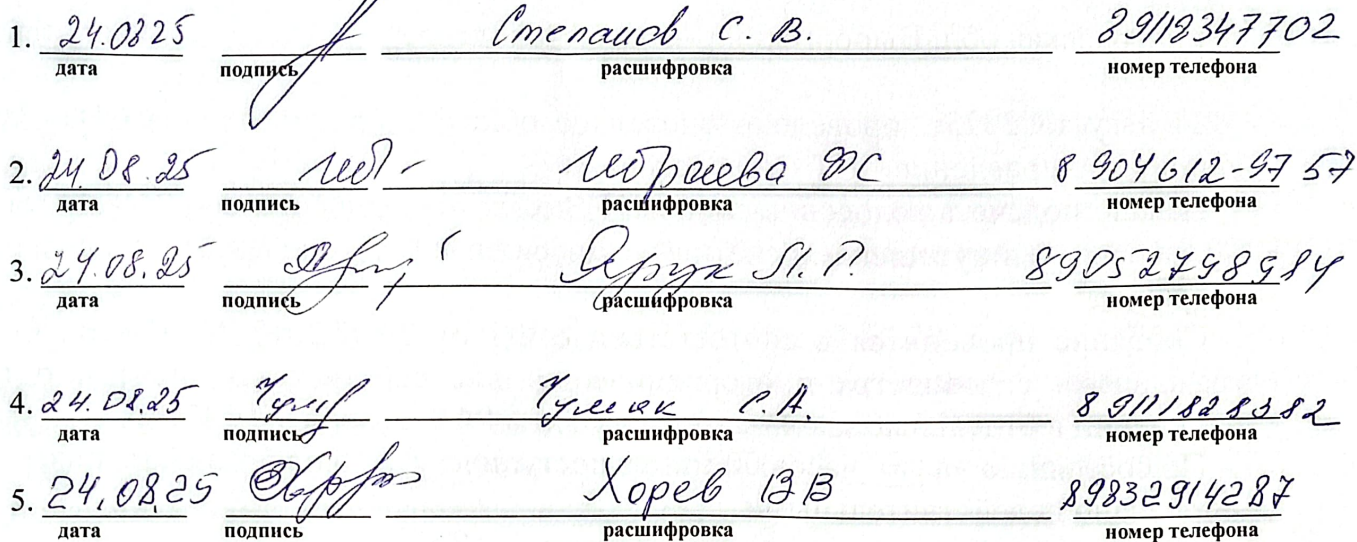 1. 24.0825 Степанов С. В. 89112347702
дата подпись расшифровка номер телефона
2. 24.08.25 ФС 8 904 612-97 57
дата подпись расшифровка номер телефона
3. 24.08.25 Ярук Л. Р. 89052798984
дата подпись расшифровка номер телефона
4. 24.08.25 Чумак С.А. 89111828382
дата подпись расшифровка номер телефона
5. 24.08.25 Хорев ВВ 89832914287
дата подпись расшифровка номер телефона